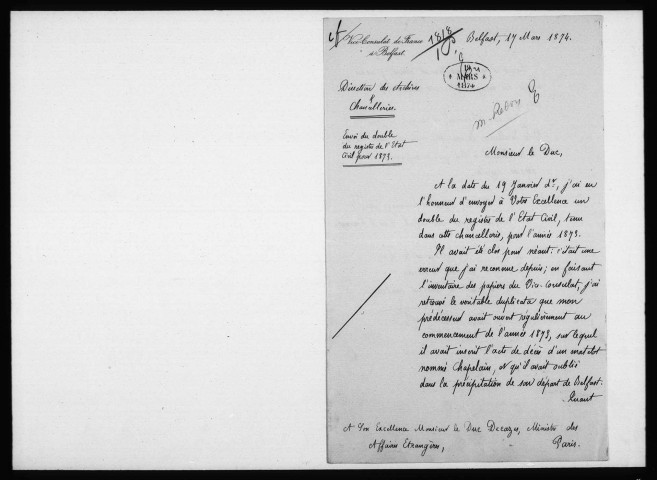 Vice-Consulat de France
à Belfast.
Belfast, 17 Mars 1874.
MARS
Direction des Archives
&
Chancelleries.
Envoi du double
du registre de l'Etat
Civil pour 1873.
Monsieur le Duc,
A la date du 19 Janvier dr, j'ai eu
l'honneur d'envoyer à Votre Excellence un
double du registre de l'Etat Civil, tenu
dans cette chancellerie, pour l'année 1873.
Il avait été clos pour néant: c'était une
erreur que j'ai reconnue depuis; en faisant
l'inventaire des papiers du Vice-Consulat, j'ai
retrouvé le véritable duplicata que mon
prédécesseur avait ouvert régulièrement au
commencement de l'année 1873, sur lequel
il avait inscrit l'acte de décès d'un matelot
nommé Chapelain, et qu'il avait oublié
dans la précipitation de son départ de Belfast.
Quant
A Son Excellence Monsieur le Duc Decazes, Ministre des
Affaires Etrangères, Paris.